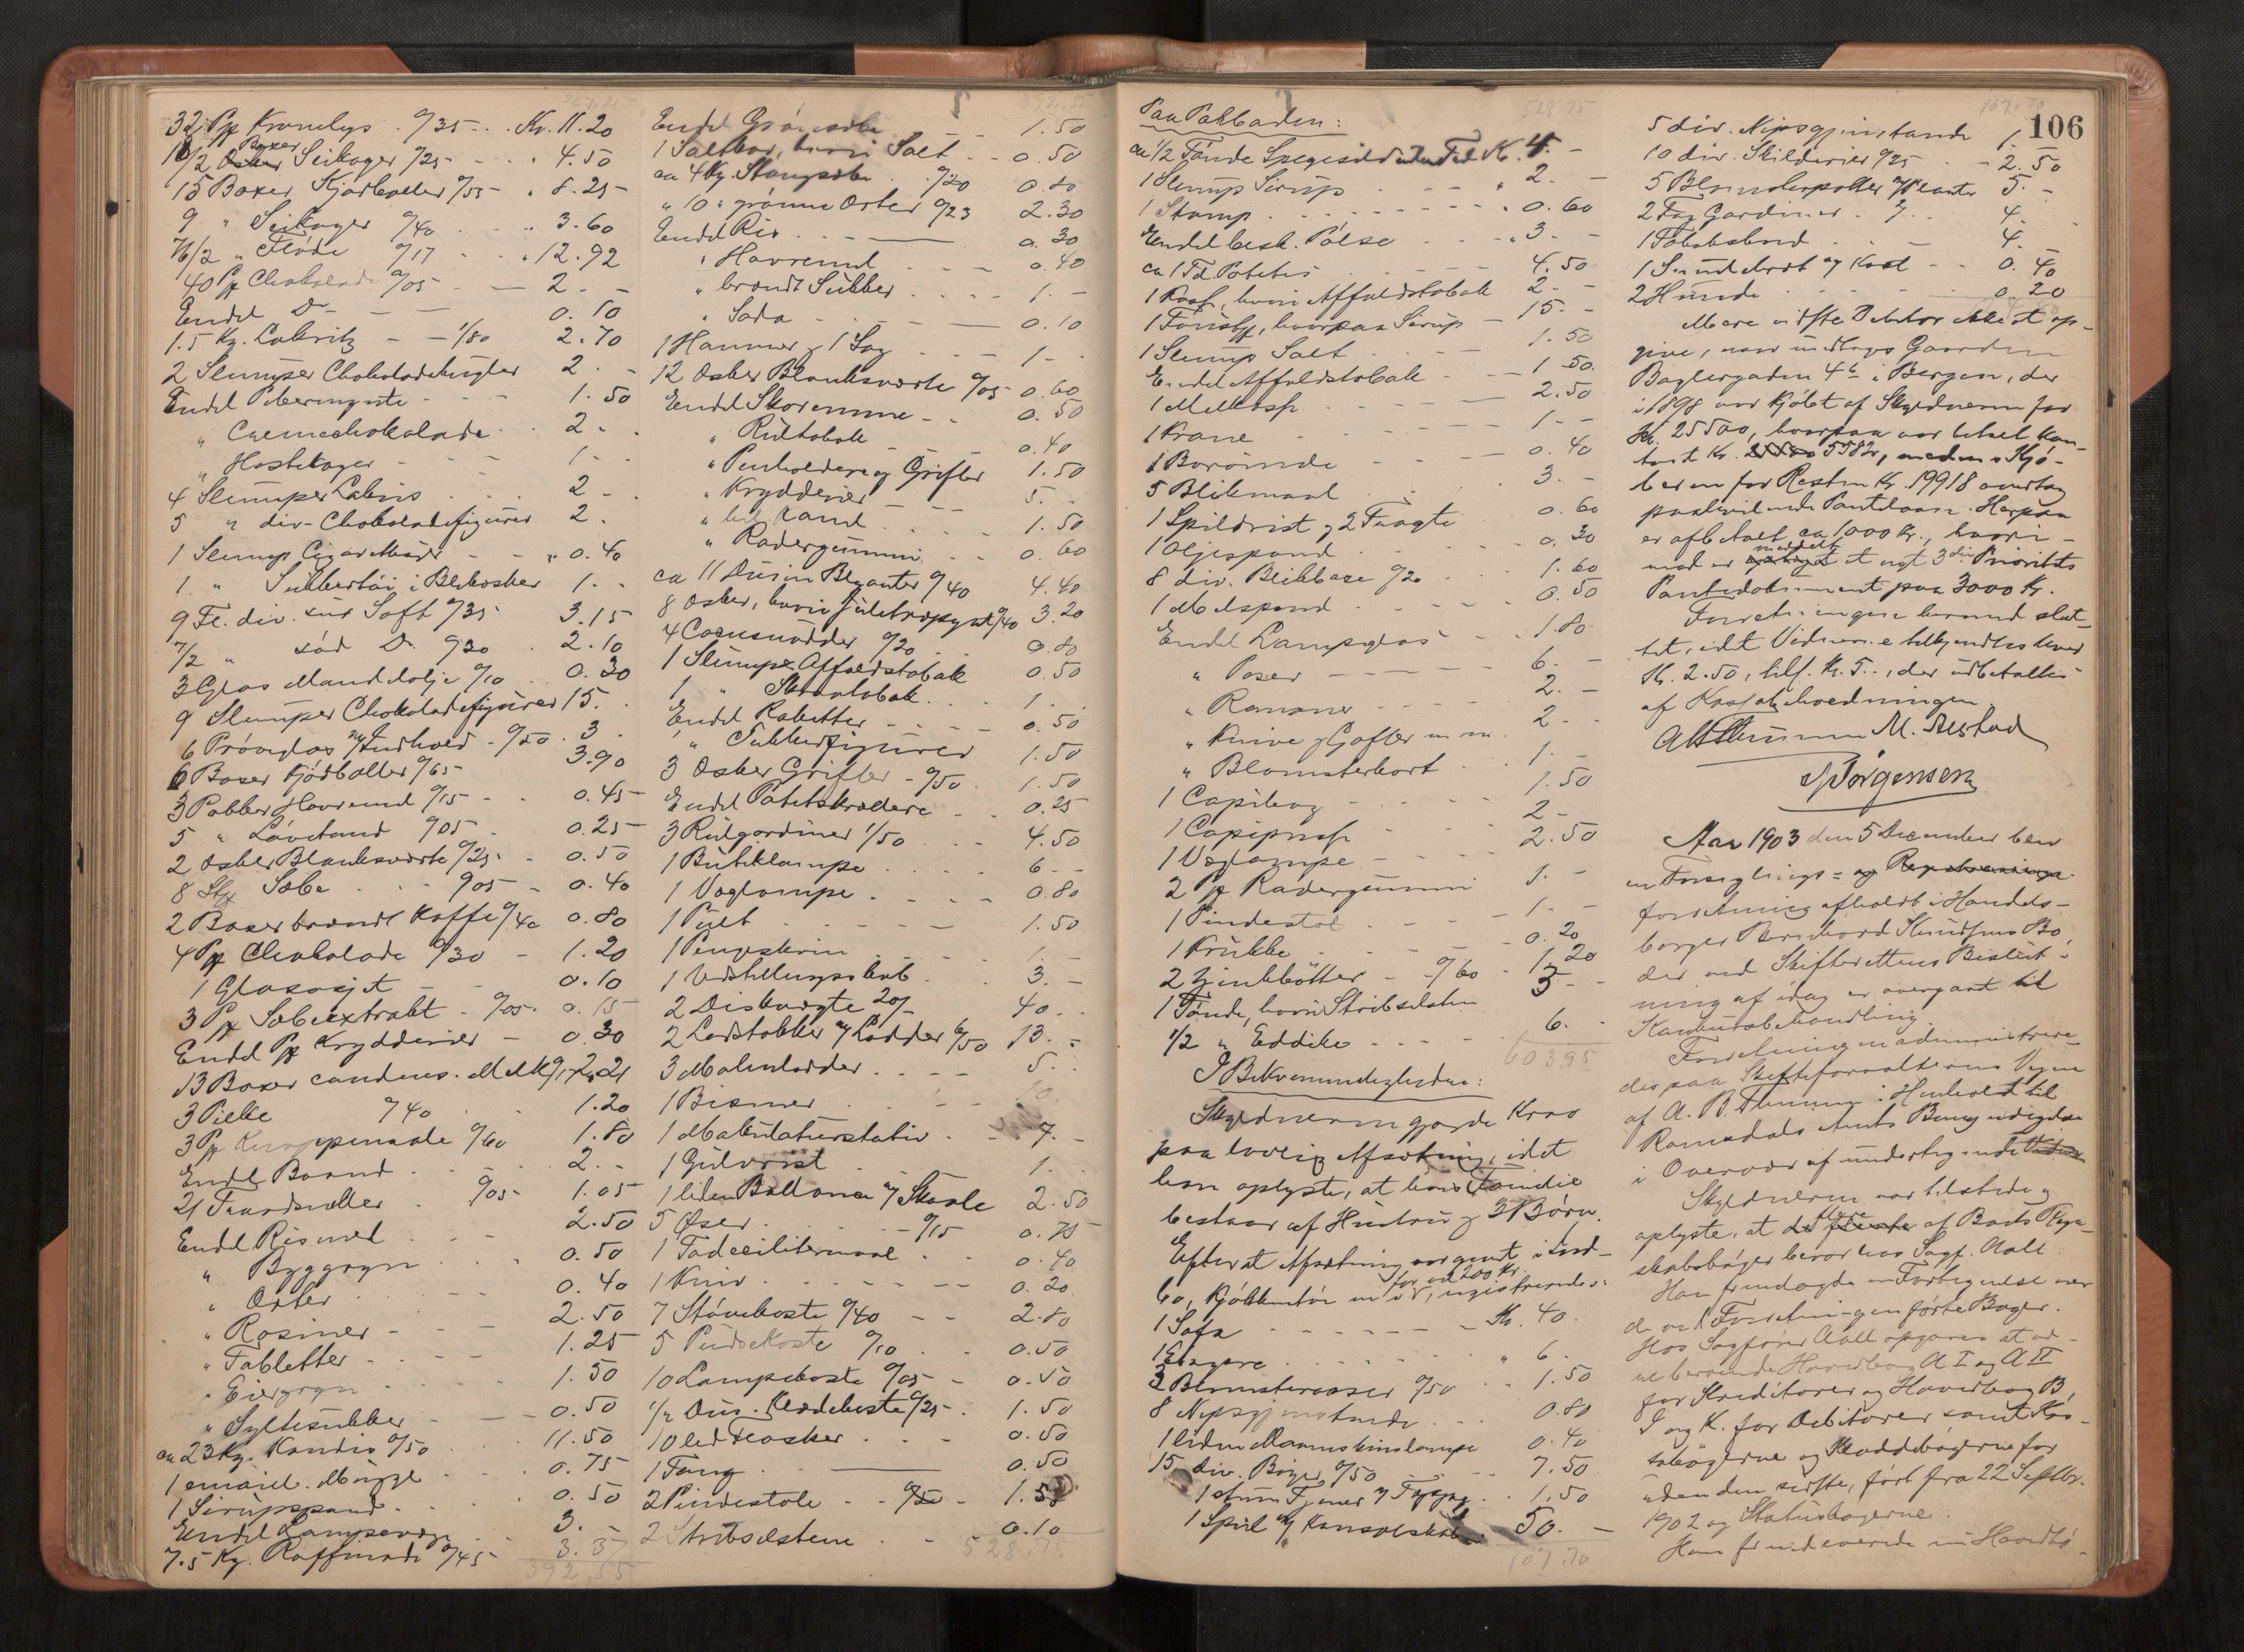 32 Pk Kronelys . %35 . . Kr. 11.20
18/2 Boxer Seikager %25 - - " 4.50
15 Boxer Kjødboller %55 . " 8.25
9 " Seikager %40 . . . " 3.60
76/2 " Fløde %17 . . . " 12.92
40 Pk Chokolade %05 - - 2. -
Endel Do - - - 0.10
1.5 Kg. Lakritz - - 1/80 2.70
2 Slumper Chokoladekugler 2. -
Endel Pebermynte - - - 1.50
" Cremechokolade . . 2 - .
" Hostekager - - - 1 - .
4 Slumper Lakris . . . 2 - .
5 " div. Chokoladefigurer 2 .
1 Slump Cigar - - " 0.40
1 " Sukkertøi i Blikæsker 1. .
9 Fl. div. sur Saft %35 3.15
7/2 " sød Do %30 . 2.10
3 Glas Mandelolje %10 . 0.30
9 Slumper Chokoladefigurer 15. .
6 Prøveglas m/Indhold - %50 . 3 .
6 Boxer Kjødboller %65 3.90
3 Pakker Havremel %15 - . 0.45
5 " Løvetand %05 . 0.25
2 Æsker Blanksværte %25 . 0.50
8 Stk Sæbe . . %05 - 0.40
2 Boxer brændt Kaffe %40 0.80
4 Pk Chokolade %30 - 1.20
1 - - 0.10
3 Pk Sæbeextrakt - %05 . 0.15
Endel Pk Krydderier - 0.30
13 Boxer condens. Melk %17 2.21
3 %40 . . 1.20
3 Pk %60 1.80
Endel Baand . . . . 2. -
21 %05 1.05
Endel Rismel . . . 2.50
" Byggryn . . . 0.50
" Ærter . . . . 0.40
" Rosiner - - - 2.50
" Tabletter . . - - 1.25
" . . . . 1.50
" Syltesukker - - - 0.50
ca 23 Kg. Kandis %50 . . 11.50
1 email. Mugge . . . . 0.75
1 Sirupsspand . . . . 0.50
Endel Lampevæge . . 3. -
7.5 Kg. Raffinade %45 - 3.37
392,55
Endel Grønsæbe - - 1.50
1 Saltkar, hvori Salt - - 0.50
ca 4 Kg. Stangsæbe . . %20 0.80
" 10 " grønne Ærter %23 2.30
Endel Ris . . - 0.30
" Havremel . . . - 0.40
" brændt Sukker . . . . 1. -
" Soda . . . . - 0.10
1 Hammer og 1 Sag . . - - 1 - .
12 Æsker Blanksværte %05 - 0.60
Endel Skoremme - - 0.50
" Rultobak 0.40
" Penholdere og Grifler 1.50
" Krydderier . . . 5. -
" hel Kanel . . . - - 1.50
" Radergummi . . . 0.60
ca 11 Dusin Blyanter %40 4.40
8 Æsker, hvori Juletræpynt %40 3.20
4 Cocusnødder %20 . . 0.80
1 Slump Affaldstobak 0.50
1 " Skraatobak . . . 1. .
Endel Raketter - - - - 0.50
" Sukkerfigurer 1.50
3 Æsker Grifler - %50 . 1.50
Endel - - 0.25
3 Rulgardiner 1/50 . . . 4.50
1 Butiklampe . . . . 6 - -
1 Væglampe . . - - 0.80
1 Pult . . . - - 1.50
1 Pengeskrin . . . . 1. -
1 Udstillingsskab . . . 3. -
2 Diskvægte 20/- . 40. .
2 Lodstokker m/Lodder 6/50 13. -
3 Malerlodder . . . . 5. .
1 Bismer . . . - - 10.
1 Makulaturstativ . . - 7. -
1 Gulvrist . . . 1. .
1 liden Ballance m/Skaale 2.50
5 Øser . . . - %15 0.75
1 . . . 0.40
1 Kniv . . . - - - - 0.20
7 Støvekoste %40 - - 2.80
5 Pudsekoste %10 . . 0.50
10 Lampekoste %05 - 0.50
1/2 Dus. Klædekoste %25 . 1.50
10 led. Flasker . . . - 0.50
1 Tang . - 0.50
2 Pindestole . - %50 - 1.50
2 . . - 0.10
528.75
Paa Pakboden:
ca 1/2 Tønde Spegesild Kr. 4. -
1 Slump Sirup . - - " 2. -
1 Stamp . . . . - - - . 0.60
Endel besk. Pølse . . - " 3. -
ca 1 Td Poteter . . . - - 4.50
1 Kasse, hvori Affaldstobak 2. -
1, hvorpaa Sirup - 15. -
1 Slump Salt . . . - 1.50
Endel Affaldstobak . - - 1.50.
1 . . . . - - 2.50
1 Krane . . . . - - 1. -
1 - - - 0.40
5 Blikmaal . . . . 3. -
1 Spildrist og 2 Tragte . 0.60
1 Oljespand . . . - - 0.30
8 div. Blikbaxe %20 . . 1.60
1 Melspand . . . - - 0.50
Endel Lampeglas - . . 1.80
" Poser - - - - 6. -
" Rammer - - - - 2. -
" Knive og Gafler m. m. 2 - .
" Blomsterkort . . 1. -
1 Copibog - - - - 1.50
1 Copipresse - - - 2 -
1 Væglampe - - - 2.50
2 Pk Radergummi 1. -
1 Pindestol . - - - 1. -
1 Krukke . . . - - 0.20
2 Zinkbøtter - %60 . 1.20
1 Tønde, hvori 3 - .
1/2 " Eddike . . . - - 6. .
603.95
I Bekvemmeligheden:
Skyldneren gjorde Krav
paa lovlig Afsætning, idet
han oplyste, at hans Familie
bestaar af Hustru og 3 Børn.
Efter at Afsætning var gjort i Ind-
bo, Kjøkkentøi m. v. for ca 200 Kr., registreredes:
1 Sofa - - - - - - - Kr. 40.
1 Etagere . . . . . . . " 6 .
3 Blomstervaser %50 . " 1.50
8 Nipsgjenstande . . . . 0.80
1 liden 0.40
15 div. Bøger %50 . . - - 7.50
. . 1.50
1 Speil m/Konsolskab . 50. -
107.70
106
5 div. Nipsgjenstande 1. -
10 div. Skilderier %25 . - 2.50
5 Blomsterpotter m/Planter 5. -
2 Fag Gardiner . . . 4. -
1 Tobaksbord . - - 4. -
1 og Kost - - 0.40
2 Hunde . . . . - 0.20
Mere vidste Debitor ikke at op-
give, naar undtages Gaarden
Baglergaden 4b i Bergen, der
i 1898 var kjøbt af Skyldneren for
Kr. 25500, hvorpaa var betalt kon-
tant Kr. 5582, medens Kjø-
beren for Resten Kr. 19918 overtog
paahvilende Pantelaan. Herpaa
er afbetalt ca 1000 Kr., hvori-
mod er meddelt et nyt 3die Prioritets
Pantedokument paa 3000 Kr.
Forretningen hermed slut-
tet, idet Vidnerne tilkjendtes hver
Kr. 2.50, tils. Kr. 5.-, der udbetaltes
af Kasse
M. Aestad
Jørgensen
Aar 1903 den 5 December blev
en Forseglings = og Registrerings
forretning afholdt i Handels-
borger Bernhard Knudsens Bo,
der ved Skifterettens Beslut-
ning af idag er overgaaet til
Konkursbehandling.
Forretningen administrere-
des paa Skifteforvalterens Vegne
af A. B. i Henhold til
Romsdals Amts Bemyndigelse
i Overvær af undertegnede Vidner
Skyldneren var tilstede og
oplyste, at de flere af Boets Regn-
skabsbøger beror hos Sagf. Aall.
Han fremlagde en Fortegnelse over
de ved Forretningen førte Bøger.
Hos Sagfører Aall opgaves at væ-
re beroende Hovedbog A I og A II
for Kreditorer og Hovedbog B,
I og K. for Debitorer samt Kas-
sabøgerne og Kladdebøgerne for
uden den sidste, ført fra 22 Septbr.
1902 og Statusbøgerne.
Han fremleverede en Hovedbo-